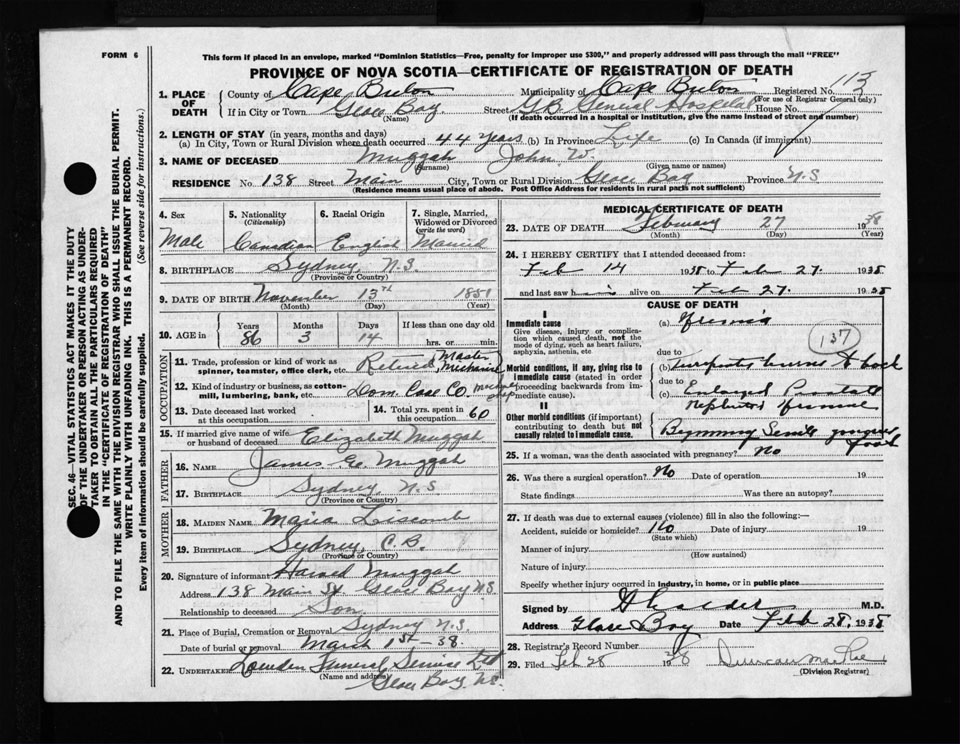 FORM 6
This form if placed in an envelope, marked "Dominion Statistics—Free, penalty for improper use $300," and properly addressed will pass through the mail "FREE"
PROVINCE OF NOVA SCOTIA—CERTIFICATE OF REGISTRATION OF DEATH
113
1. PLACE OF DEATH
County of Cape Breton Municipality of Cape Breton Registered No.
(For use of Registrar General only)
If in City or Town Glace Bay Street G.B. General Hospital House No.
(Name) (If death occurred in a hospital or institution, give the name instead of street and number)
2. LENGTH OF STAY (in years, months and days)
(a) In City, Town or Rural Division where death occurred 44 years (b) In Province Life (c) In Canada (if immigrant)
3. NAME OF DECEASED Muggah John W.
(Surname) (Given name or names)
RESIDENCE No. 138 Street Main City, Town or Rural Division Glace Bay Province N.S
(Residence means usual place of abode. Post Office Address for residents in rural parts not sufficient)
SEC. 46—VITAL STATISTICS ACT MAKES IT THE DUTY
OF THE UNDERTAKER OR PERSON ACTING AS UNDER-
TAKER TO OBTAIN ALL THE PARTICULARS REQUIRED
IN THE "CERTIFICATE OF REGISTRATION OF DEATH"
AND TO FILE THE SAME WITH THE DIVISION REGISTRAR WHO SHALL ISSUE THE BURIAL PERMIT.
WRITE PLAINLY WITH UNFADING INK. THIS IS A PERMANENT RECORD.
Every item of information should be carefully supplied. (See reverse side for instructions.)
4. Sex 5. Nationality 6. Racial Origin 7. Single, Married,
(Citizenship) Widowed or Divorced
(write the word)
Male Canadian English Married
8. BIRTHPLACE Sydney, N.S.
(Province or Country)
9. DATE OF BIRTH November 13th 1851
(Month) (Day) (Year)
10. AGE in Years Months Days If less than one day
86 3 14 hrs. or min.
OCCUPATION
11. Trade, profession or kind of work as Retired Master Mechanic
spinner, teamster, office clerk, etc.
12. Kind of industry or business, as cotton-
mill, lumbering, bank, etc. Dom. Coal Co.
13. Date deceased last worked
at this occupation
14. Total yrs. spent in
this occupation 60
15. If married give name of wife
or husband of deceased Elizabeth Muggah
FATHER
16. NAME James E. Muggah
17. BIRTHPLACE Sydney N.S
(Province or Country)
MOTHER
18. MAIDEN NAME Maria Liscomb
19. BIRTHPLACE Sydney, C.B.
(Province or Country)
20. Signature of informant Harold Muggah
Address 138 Main St. Glace Bay N.S
Relationship to deceased Son
21. Place of Burial, Cremation or Removal Sydney N.S.
Date of burial or removal March 1st - 38.
22. UNDERTAKER Funeral Service Ltd
(Name and address)
Glace Bay N.S.
MEDICAL CERTIFICATE OF DEATH
23. DATE OF DEATH February 27 1938
(Month) (Day) (Year)
24. I HEREBY CERTIFY that I attended deceased from:
Feb 14 1938 to Feb 27. 1938
and last saw him alive on Feb 27. 1938
CAUSE OF DEATH
I
Immediate cause (a) Uremia
Give disease, injury or complica-
tion which caused death, not the
mode of dying, such as heart failure,
asphyxia, asthenia, etc
137
due to
Morbid conditions, if any, giving rise to
immediate cause (stated in order
proceeding backwards from im-
mediate cause).
(b)
due to
(c) Enlarged Prostate
II
Other morbid conditions (if important)
contributing to death but not
causally related to immediate cause.
Beginning Senile
25. If a woman, was the death associated with pregnancy? No
26. Was there a surgical operation? No Date of operation 19
State findings Was there an autopsy?
27. If death was due to external causes (violence) fill in also the following:—
Accident, suicide or homicide? No Date of injury 19
(State which)
Manner of injury
(How sustained)
Nature of injury
Specify whether injury occurred in industry, in home, or in public place
Signed by M.D.
Address Glace Bay Date Feb 28, 1938
28. Registrar's Record Number
29. Filed Feb 28 1938 Duncan
(Division Registrar)